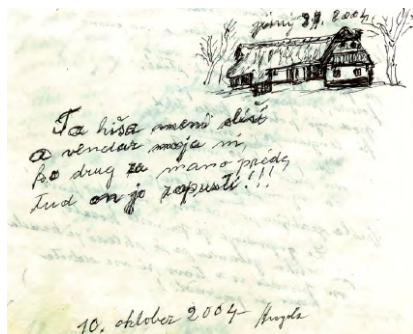 2004
Ta hiša meni služi
a vendar moja ni,
ko drug za mano pride
tud on jo zapusti!!!
10. oktober 2004